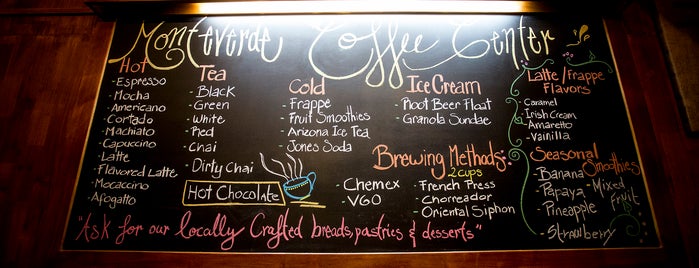 Monteverde Coffee Center
Hot
- Espresso
- Mocha
- Americano
- Cortado
- Machiato
- Capuccino
- Latte
- Flavored Latte
- Mocaccino
- Afogatto
Tea
- Black
- Green
- White
- Red
- Chai
- Dirty Chai
Hot Chocolate
Cold
- Frappe
- Fruit Smoothies
- Arizona Ice Tea
- Jones Soda
Ice Cream
- Root Beer Float
- Granola Sundae
Brewing Methods:
2 cups
- Chemex
- V60
- French Press
- Chorreador
- Oriental Siphon
Latte/Frappe
Flavors
- Caramel
- Irish Cream
- Amaretto
- Vainilla
Seasonal
Smoothies
- Banana
- Papaya
- Pineapple
- Strawberry
- Mixed
Fruit
"Ask for our locally Crafted breads, pastries & desserts"